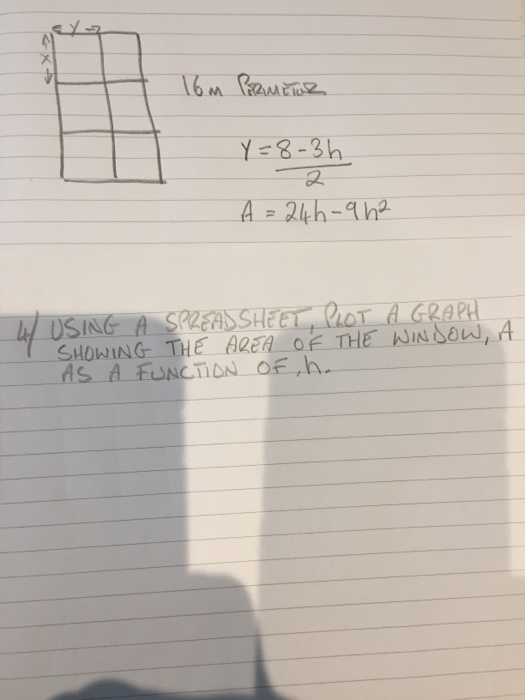 Y
X
16m PERIMETER
Y = 8-3h
2
A = 24h-9h²
4/ USING A SPREADSHEET, PLOT A GRAPH
SHOWING THE AREA OF THE WINDOW, A
AS A FUNCTION OF, h.